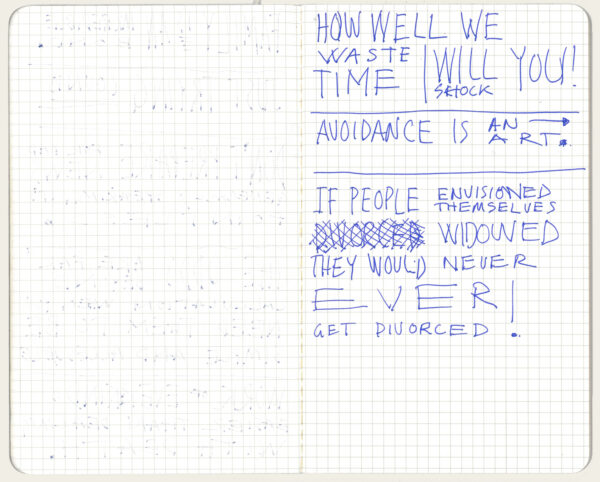 HOW WELL WE
WASTE
TIME | WILL YOU!
SHOCK
AVOIDANCE IS AN
ART.
IF PEOPLE ENVISIONED
THEMSELVES
WIDOWED
THEY WOULD NEVER
EVER!
GET DIVORCED .